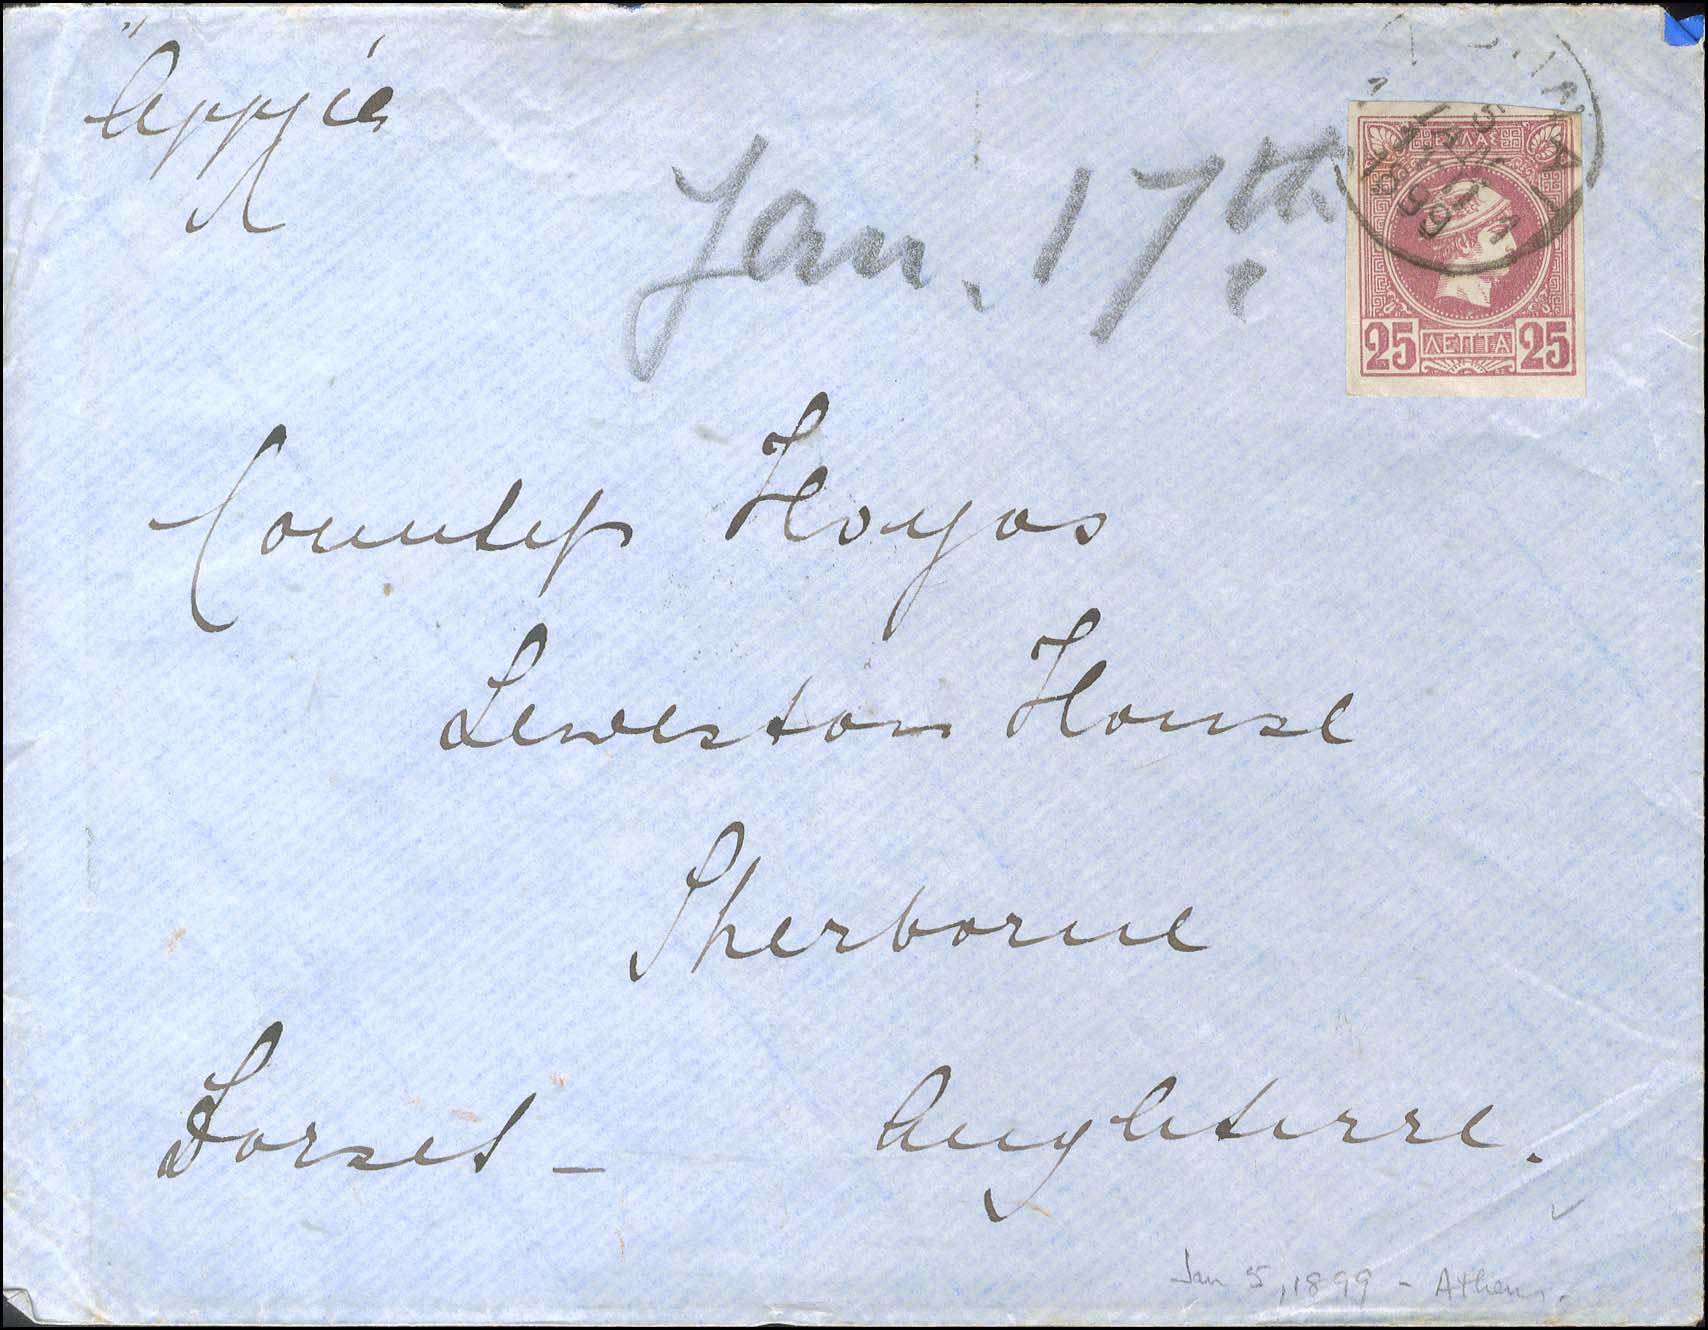 Αγγλία
Jan. 17th.
ΕΛΛΑΣ
25 ΛΕΠΤΑ 25
Countess Hoyos
Leweston House
Sherborne
Dorset –
Angleterre.
Jan 5, 1899 – Athens.